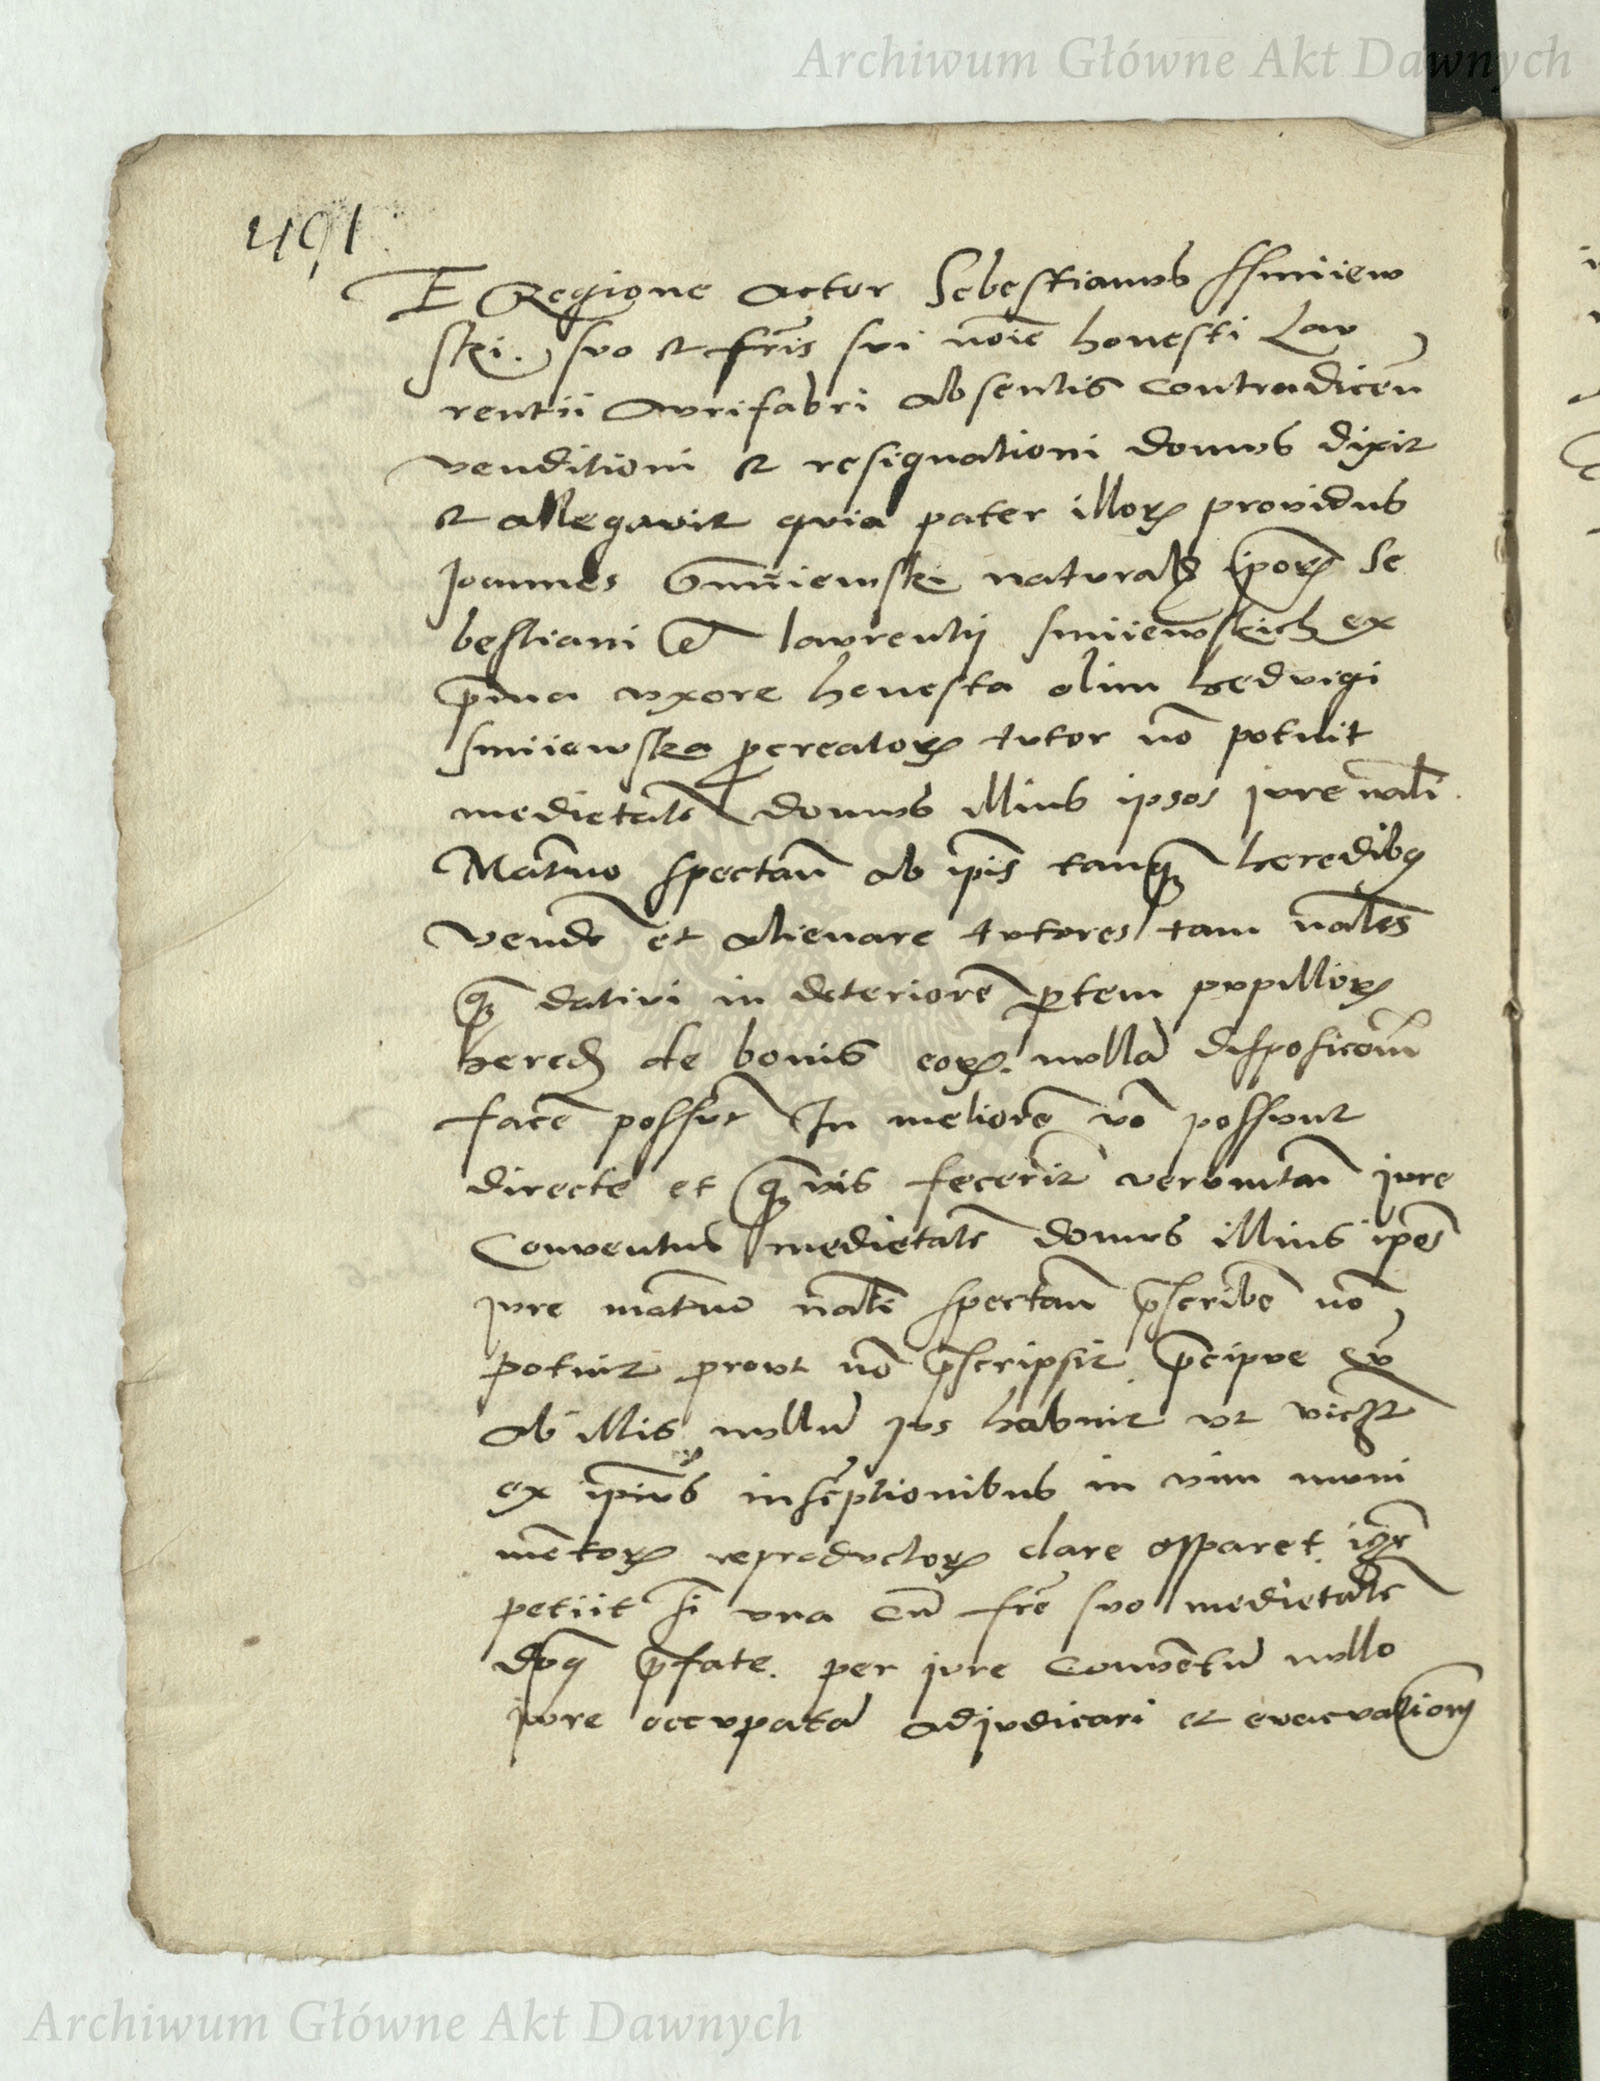 Archiwum Główne Akt Dawnych
491
E Regione actor Sebestianus Ssmiiew
ski. suo et fris sui noie honesti Lau
rentii Aurifabri absentis contradicen
venditioni et resignationi domus dixit
et allegavit quia pater illor providus
Joannes naturalis ipor Se
bestiani et laurentij smiiewskich ex
pma uxore honesta olim hedvigi
smiiewska pcreator tutor no potuit
medietate domus illius ipsos jure nali
Matno spectan ab ipis tanq heredibq
vende et alienare tutores tam nales
q dativi in deteriore ptem pupillor
hered de bonis eor. nulla disposicom
face possut In meliore vo possunt
directe et qvis fecerit verumtn jure
Conventus medietate domus illius ipos
jure matno nali spectan pscribe no
potuit prout no pscripsit pcipue cu
ab illis nullu jus habuit ut
ex ipius inscptionibus in vim muni
mentor reproductor clare apparet. igr
petiit si una cu fre suo medietate
domq pfate. per jure Conventu nullo
jure occupata adjudicari et evacuationj
Archiwum Główne Akt Dawnych